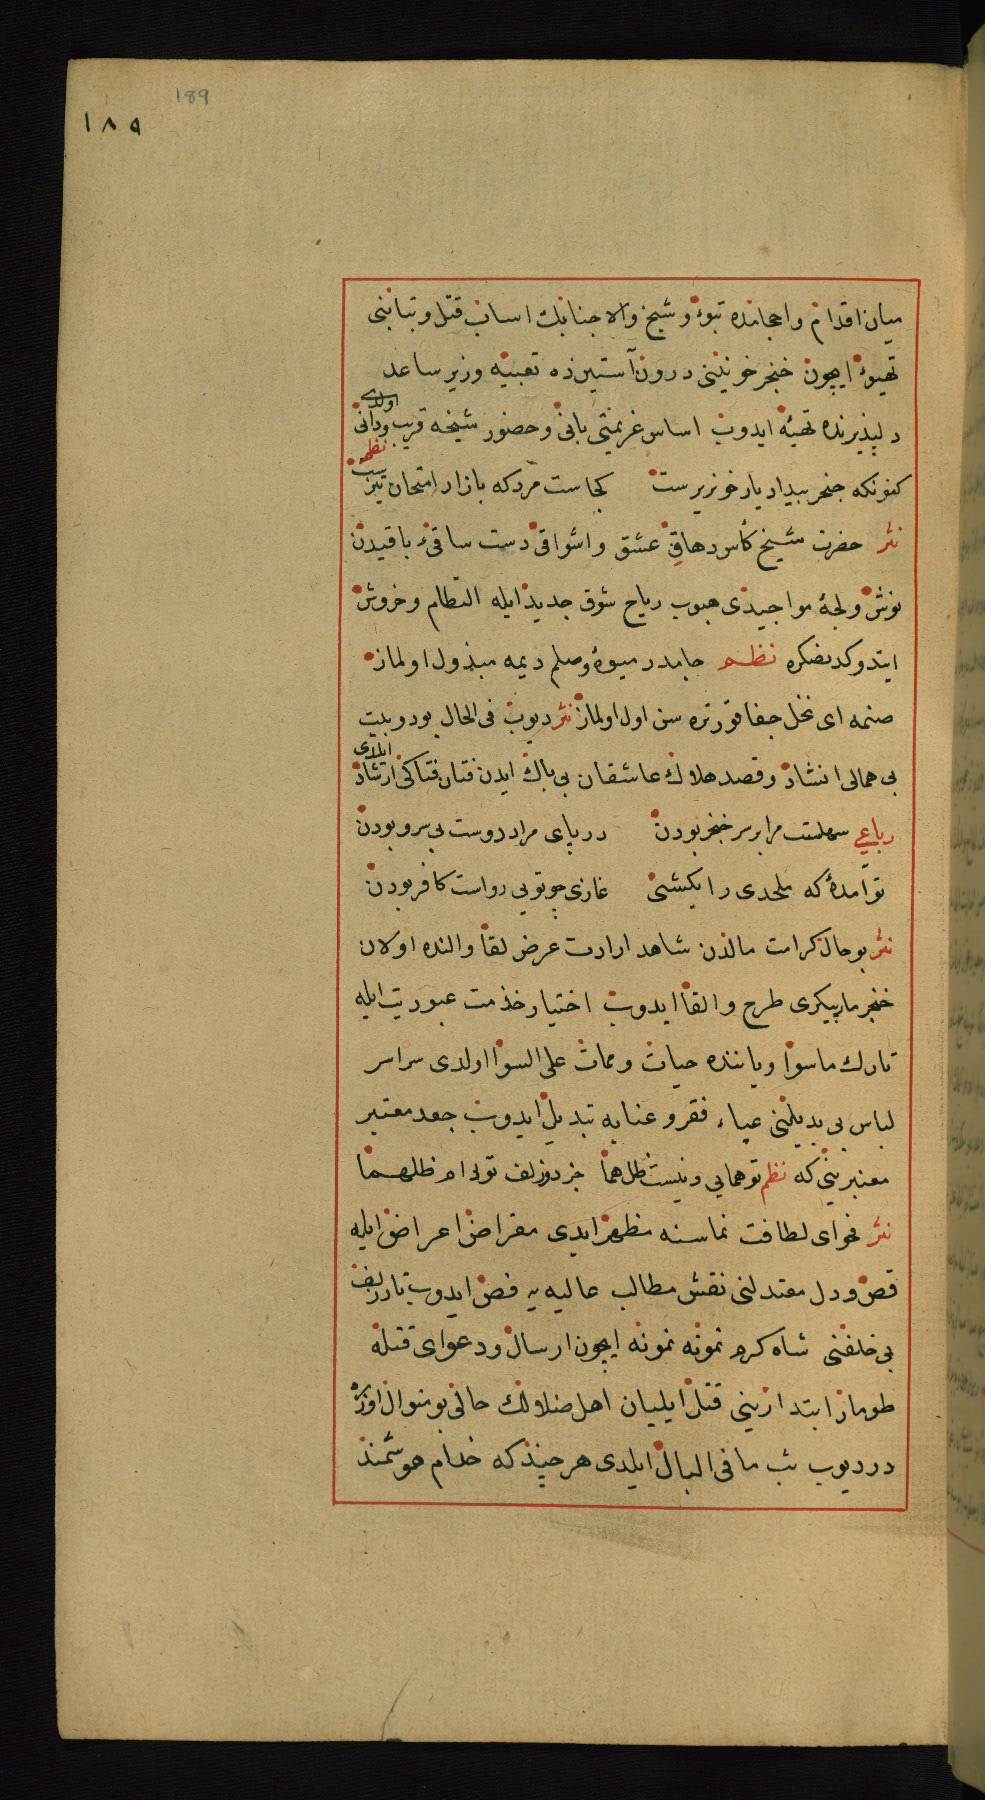 189
١٨٩
ميان اقدام واحجامنده تبوء و شيخ والا جنابك اسباب قتل و تبابنى
تهيوء ايچون خنجر خونينى درون آستين زه تعبيه وزير ساعد
دلپذيرنده تهيئه ايدوب اساس عزيمتى بانى وحضور شيخه قريب ودانى اولدى نظم
كنونكه خنجر بيداد يار خونريرست كجاست مردكه بازار امتحان تيزست
نثر حضرت شيخ كأس دهاق عشق واشواقى دست ساقىء باقيدن
نوش ولجهٔ مواجيدى هبوب رياح شوق جديد ايله التطام وخروش
ايتدوكدنصكره نظم جامدر ميوهٔ وصلم ديمه مبذول اولماز
صنمه اى نخل جفا قورتره سن اول اولماز نثر ديوب فى الحال بو دو بيت
بى همالى انشاد وقصد هلاك عاشقان بى باك ايدن فتان فتاكى ارشاد ايلدى
رباعي سهلست مرا بر سر خنجر بودن در پاى مراد دوست بى سر بودن
تو آمدهٔ كه ملحدى را بكشى غازى چو تويى رواست كافر بودن
نثر بو حال كرامت مالدن شاهد ارادت عرض لقا والنده اولان
خنجر مارپيكرى طرح والقا ايدوب اختيار خذمت عبوديت ايله
تارك ماسوا وياننده حيات وممات على السوا اولدى سراسر
لباس بى بديلنى عباء فقر و عنايه تبديل ايدوب جعد معتبر
معنبرينى كه نظم تو همايى ونيست ظل هما جز دو زلف تو دام ظلهما
نثر فحواى لطافت نماسنه مظهر ايدى مقراض اعراض ايله
قص ودل معتدلنى نقش مطالب عاليه يه فص ايدوب تار زلف
بى خلفنى شاه كرم نمونه نمونه ايچون ارسال ودعواى قتله
طومار ابتدا زينى قتل ايليان اهل ضلالك حالى بو منوال اوزره
در ديوب بث ما فى البال ايلدى هر چند كه خدام هوشمند